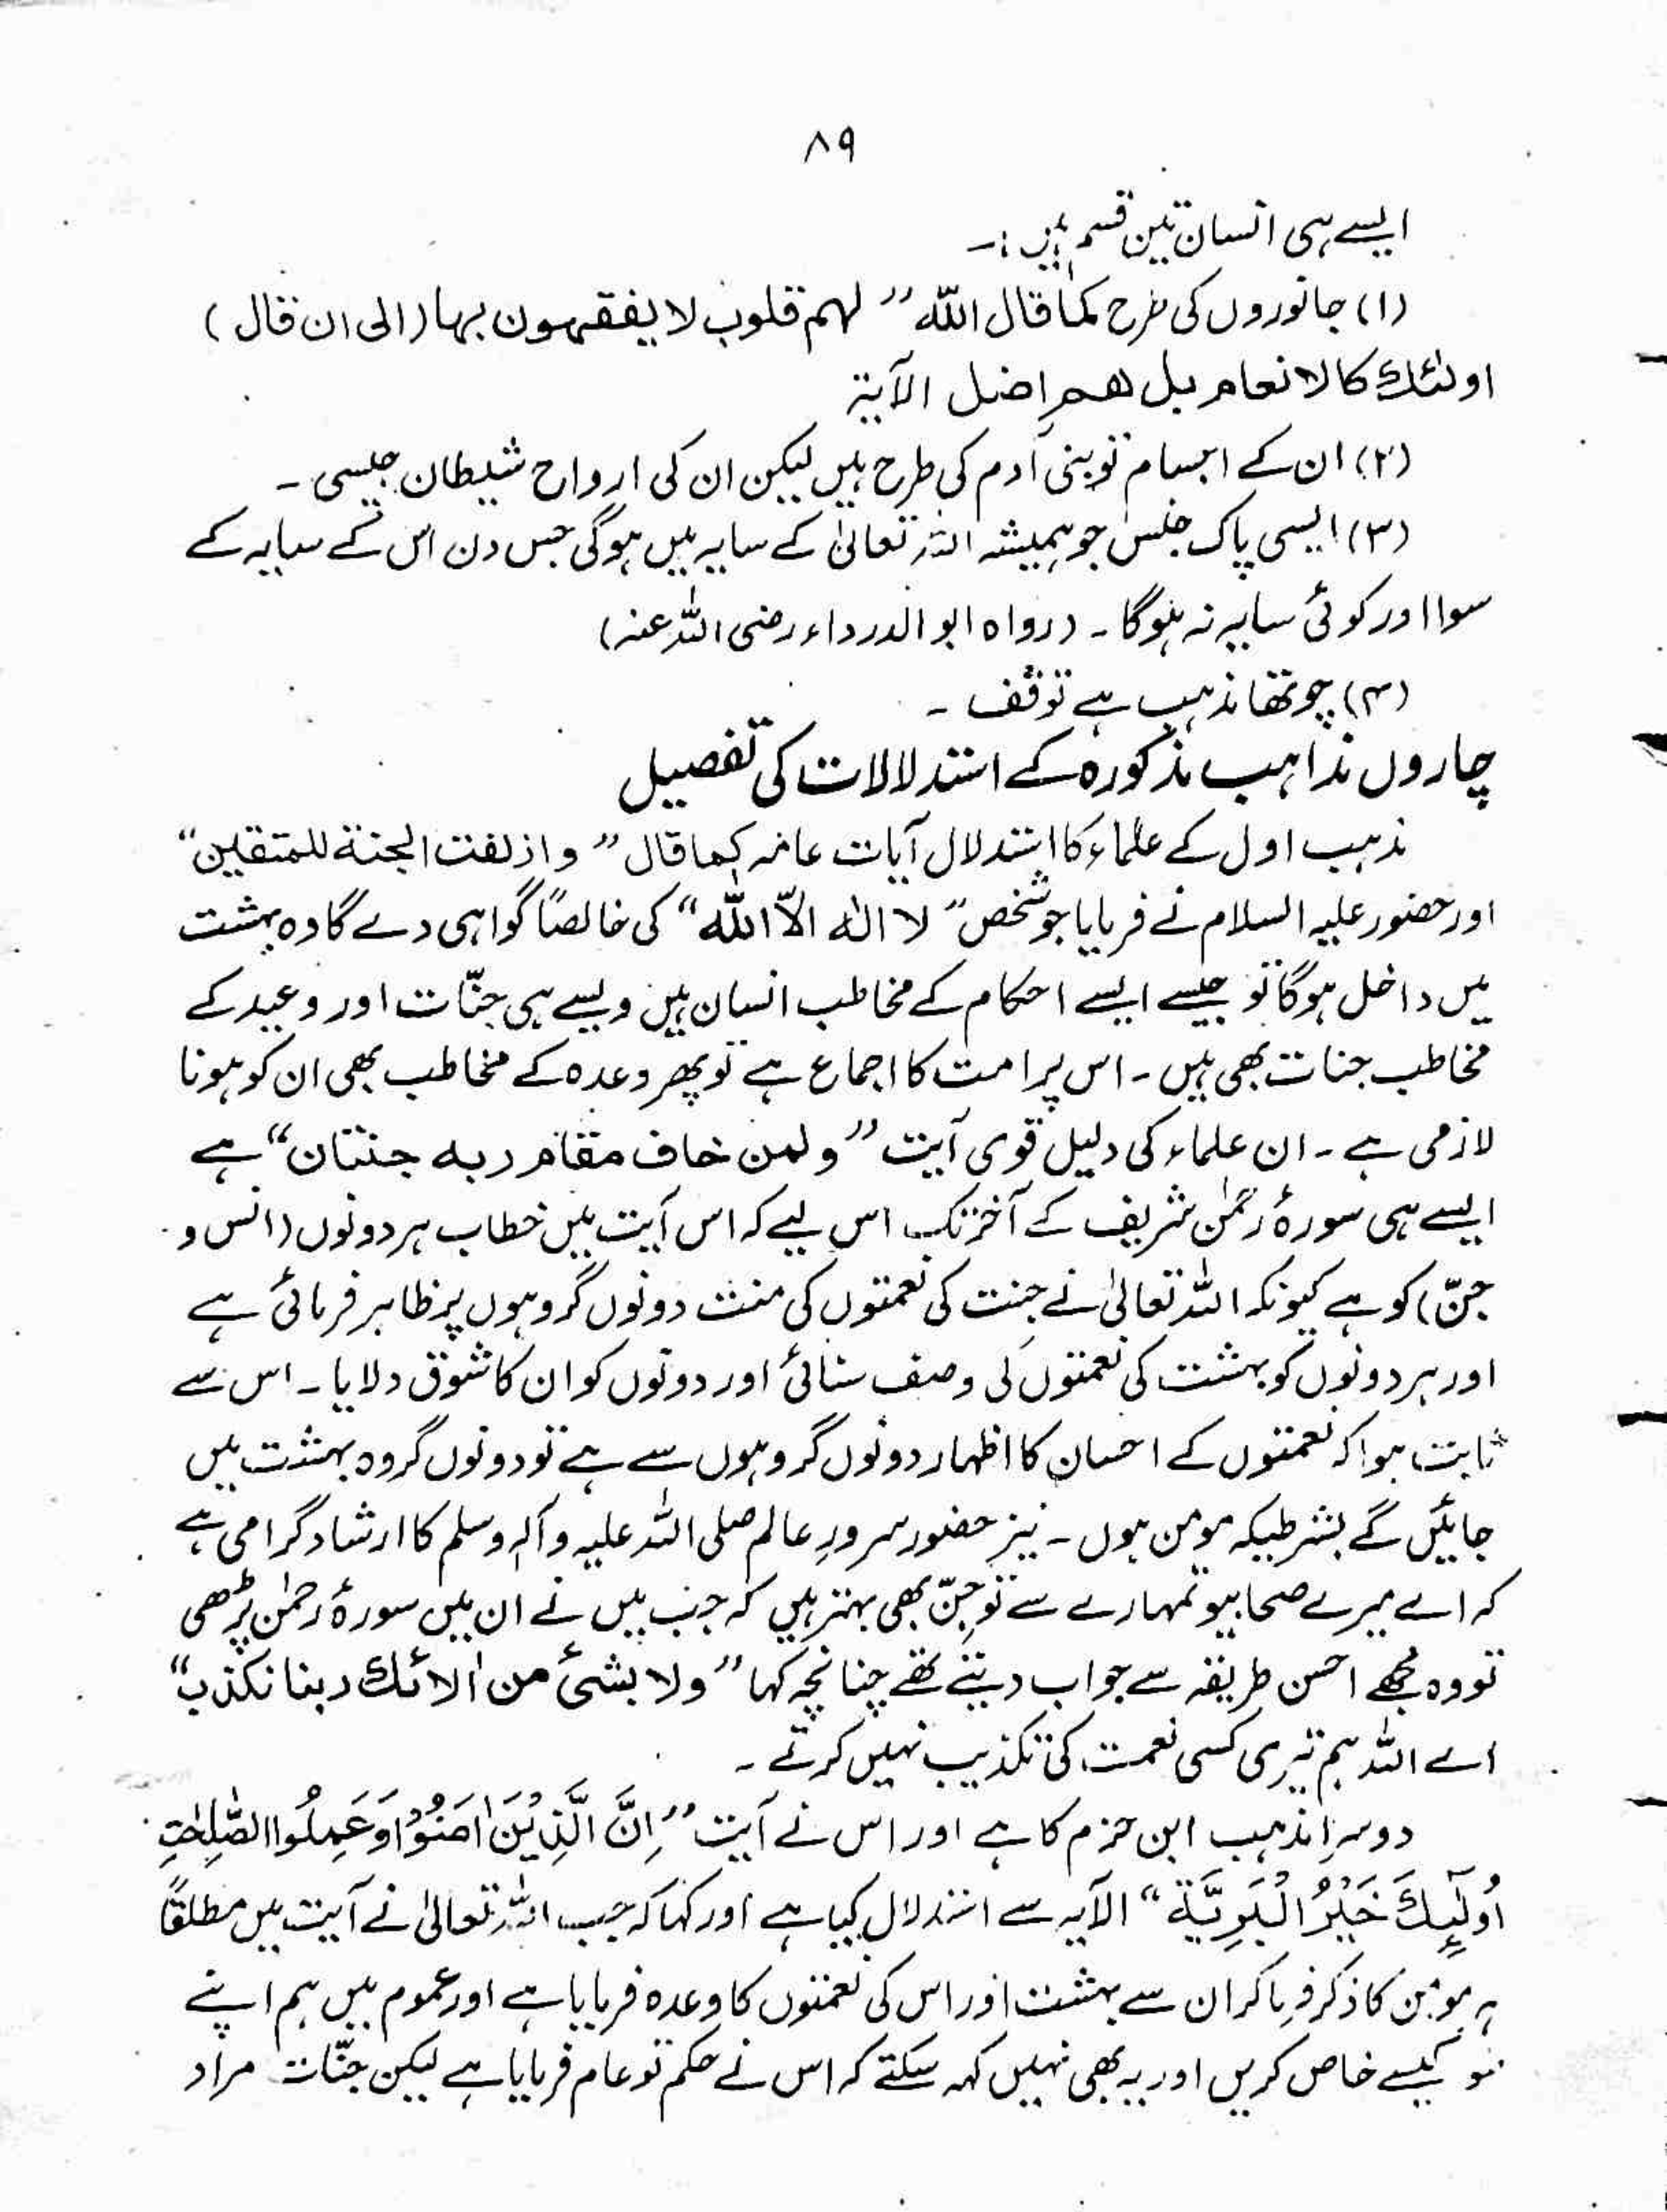 ۸۹
ایسے ہی انسان تین قسم ہیں :۔
(۱) جانوروں کی طرح کما قال اللہ ” لہم قلوب لا یفقہون بہا (الی ان قال )
اولئک کالانعام بل ھم اضل الآیۃ
(۲) ان کے اجسام تو بنی آدم کی طرح ہیں لیکن ان کی ارواح شیطان جیسی ۔
(۳) ایسی پاک جنس جو ہمیشہ اللہ تعالیٰ کے سایہ میں ہوگی جس دن اس کے سایہ کے
سوا اور کوئی سایہ نہ ہوگا ۔ (رواہ ابو الدرداء رضی اللہ عنہ)
(۴) چوتھا مذہب ہے توقف ۔
چاروں مذاہب مذکورہ کے استدلالات کی تفصیل
مذہب اول کے علماء کا استدلال آیات عامہ کما قال ” و ازلفت الجنۃ للمتقین “
اور حضور علیہ السلام نے فرمایا جو شخص ” لا الٰہ الّا اللہ “ کی خالصاً گواہی دے گا وہ بہشت
میں داخل ہوگا تو جیسے ایسے احکام کے مخاطب انسان ہیں ویسے ہی جنّات اور وعید کے
مخاطب جنات بھی ہیں ۔ اس پر امت کا اجماع ہے تو پھر وعدہ کے مخاطب بھی ان کو ہونا
لازمی ہے ۔ ان علماء کی دلیل قوی آیت ” و لمن خاف مقام ربہ جنتان “ ہے
ایسے ہی سورۂ رحمٰن شریف کے آخر تک اس لیے کہ اس آیت میں خطاب ہر دونوں (انس و
جنّ) کو ہے کیونکہ اللہ تعالیٰ نے جنت کی نعمتوں کی منت دونوں گروہوں پر ظاہر فرمائی ہے
اور ہر دونوں کو بہشت کی نعمتوں کی وصف سنائی اور دونوں کو ان کا شوق دلایا ۔ اس سے
ثابت ہوا کہ نعمتوں کے احسان کا اظہار دونوں گروہوں سے ہے تو دونوں گروہ بہشت میں
جائیں گے بشرطیکہ مومن ہوں ۔ نیز حضور سرورِ عالم صلی اللہ علیہ وآلہ وسلم کا ارشاد گرامی ہے
کہ اے میرے صحابیو تمہارے سے تو جنّ بھی بہتر ہیں کہ جب میں نے ان میں سورۂ رحمٰن پڑھی
تو وہ مجھے احسن طریقہ سے جواب دیتے تھے چنانچہ کہا ” ولا بشئ من اٰلائک ربنا نکذب “
اے اللہ ہم تیری کسی نعمت کی تکذیب نہیں کرتے ۔
دوسرا مذہب ابن حزم کا ہے اور اس نے آیت ” اِنَّ الَّذِیْنَ اٰمَنُوْا وَعَمِلُوا الصّٰلِحٰتِ
اُولٰٓئِکَ خَیْرُ الْبَرِیَّۃ “ الآیہ سے استدلال کیا ہے اور کہا کہ جب اللہ تعالیٰ نے آیت میں مطلقاً
ہر مومن کا ذکر فرما کر ان سے بہشت اور اس کی نعمتوں کا وعدہ فرمایا ہے اور عموم میں ہم اپنے
کیسے خاص کریں اور یہ بھی نہیں کہہ سکتے کہ اس نے حکم تو عام فرمایا ہے لیکن جنّات مراد